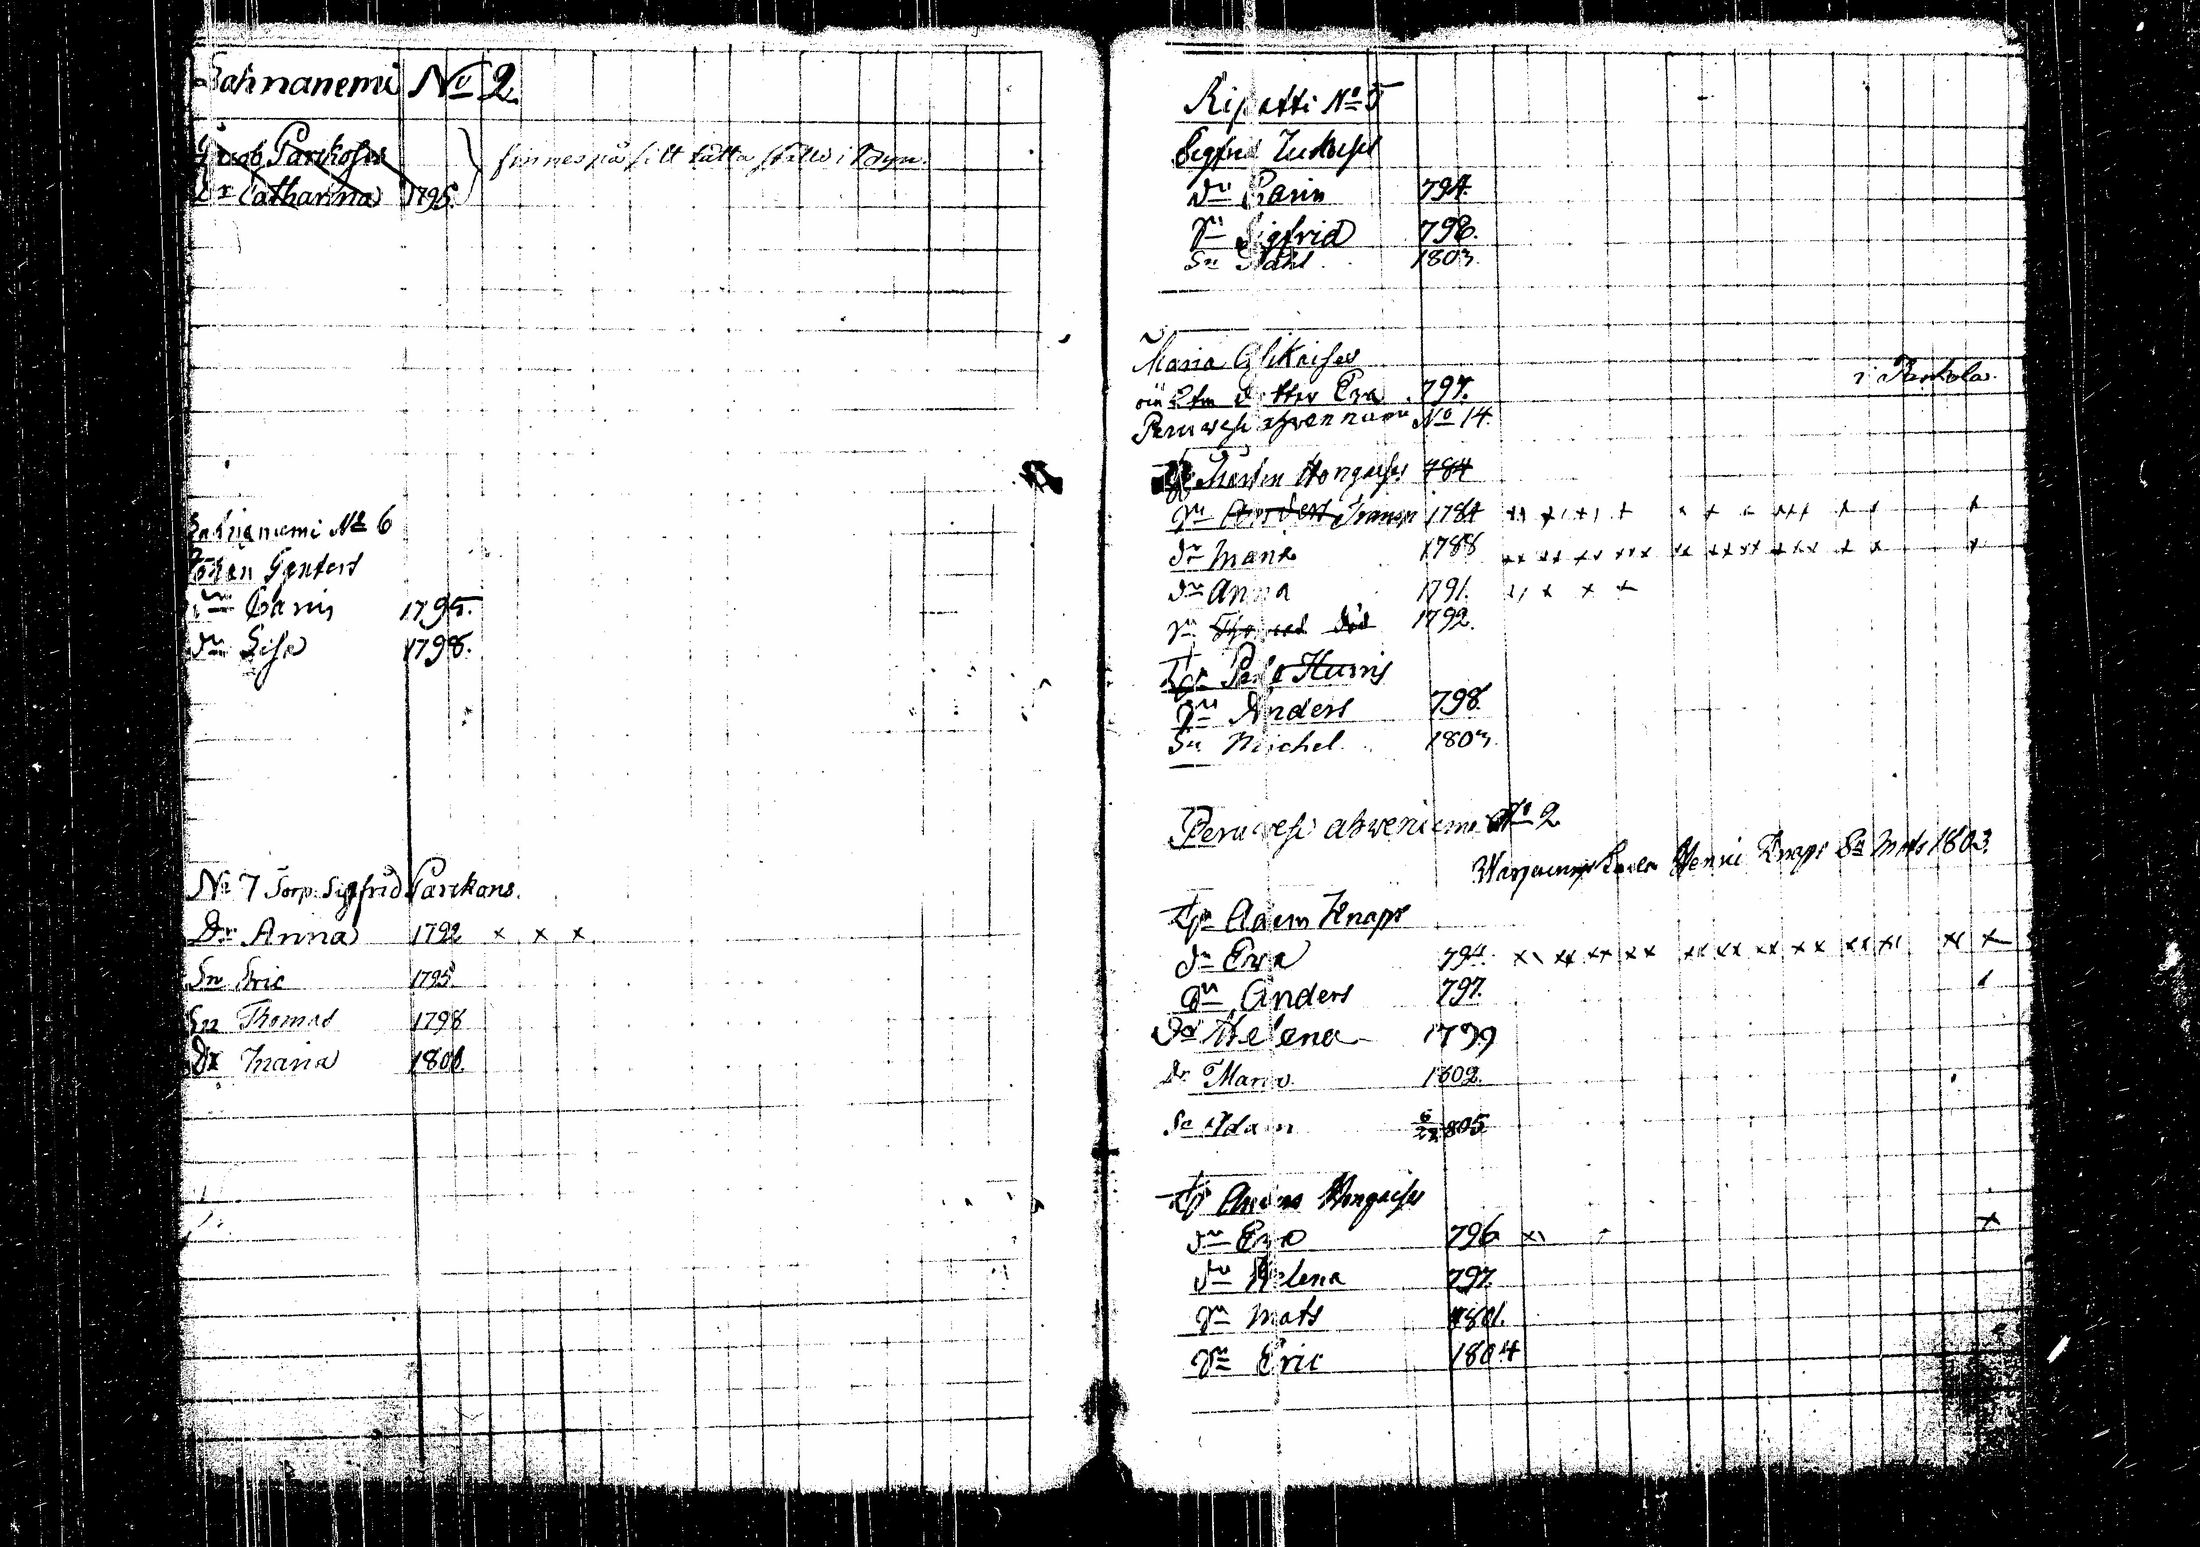 Sahnanemi No 2
Jacob Parikoses
Dr Catharina 1795.
finnes på sitt rätta ställe i byn.
Sahnanemi No 6
Johan Genters
Dr Carin 1795.
Dr Lisa 1798.
No 7 Torp. Sigfrid Parikans.
Dr Anna 1792 x x x
Sn Eric 1795
Sn Thomas 1798
Dr Maria 1800.
Ripatti No 5
Sigfrid
Dr Carin 794.
Sn Sigfrid 798.
Sn Påhl 1803.
Maria
dotter Eva 797.
i Parkola.
Peruvesi No 14.
Hongaises 784
Sn Anders 1784
Dr Maria 1788
Dr Anna 1791.
Sn Thomas död 1792.
Sn Anders 798.
Sn Michel 1803.
Peruvesi ahveniemi No 2
Henric Knaps Sn Mats 1803.
Adam Knaps
Dr Eva 794.
Sn Anders 797.
Dr Helena 1799
Dr Maria 1802.
Sn Adam 805
Anders Hongaises
Dr Eva 796
Dr Helena 797.
Sn Mats 1801.
Sn Eric 1804